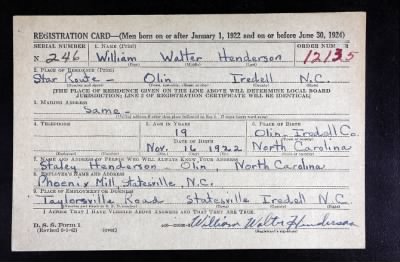 REGISTRATION CARD—(Men born on or after January 1, 1922 and on or before June 30, 1924)
SERIAL NUMBER 1. NAME (Print) ORDER NUMBER
N 246 William Walter Henderson 12135
(First) (Middle) (Last)
2. PLACE OF RESIDENCE (Print)
Star Route - Olin Iredell N.C.
[THE PLACE OF RESIDENCE GIVEN ON THE LINE ABOVE WILL DETERMINE LOCAL BOARD
JURISDICTION; LINE 2 OF REGISTRATION CERTIFICATE WILL BE IDENTICAL]
3. MAILING ADDRESS
Same -
4. TELEPHONE 5. AGE IN YEARS 6. PLACE OF BIRTH
19 Olin - Iredell Co.
DATE OF BIRTH
Nov. 16 1922 North Carolina
7. NAME AND ADDRESS OF PERSON WHO WILL ALWAYS KNOW YOUR ADDRESS
Staley Henderson - Olin, North Carolina
8. EMPLOYER'S NAME AND ADDRESS
Phoenix Mill, Statesville, N.C.
9. PLACE OF EMPLOYMENT OR BUSINESS
Taylorsville Road Statesville Iredell N.C.
I AFFIRM THAT I HAVE VERIFIED ABOVE ANSWERS AND THAT THEY ARE TRUE.
D. S. S. Form 1
(Revised 6-1-42) William Walter Henderson
(Registrant's signature)